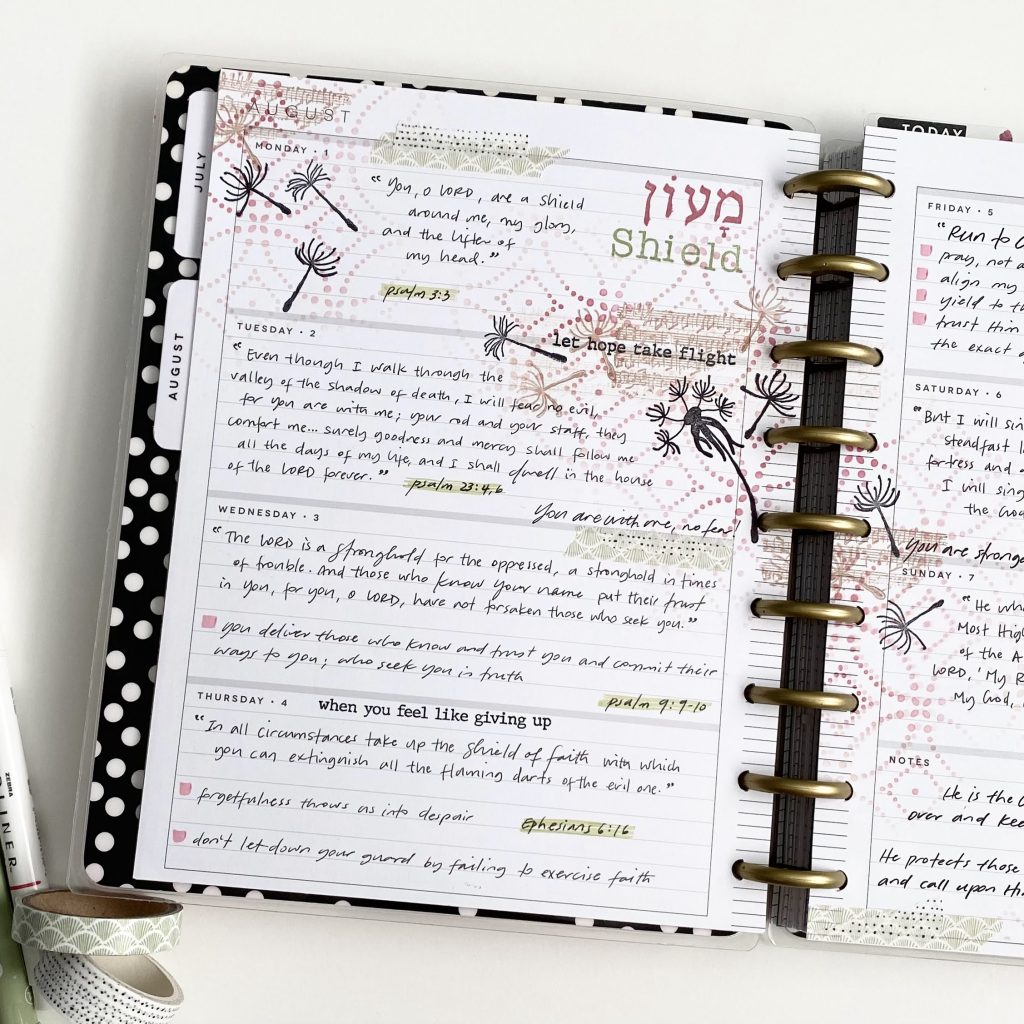 JULY
AUGUST
AUGUST
MONDAY • 1
"You, O LORD, are a shield
around me, my glory,
and the lifter of
my head."
psalm 3:3
מָעוֹן
Shield
TUESDAY • 2
let hope take flight
"Even though I walk through the
valley of the shadow of death, I will fear no evil,
for you are with me; your rod and your staff, they
comfort me... surely goodness and mercy shall follow me
all the days of my life, and I shall dwell in the house
of the LORD forever."
psalm 23:4,6
You are with me, no fear!
WEDNESDAY • 3
"The LORD is a stronghold for the oppressed, a stronghold in times
of trouble. And those who know your name put their trust
in you, for you, O LORD, have not forsaken those who seek you."
you deliver those who know and trust you and commit their
ways to you; who seek you in truth
psalm 9:9-10
THURSDAY • 4
when you feel like giving up
"In all circumstances take up the shield of faith with which
you can extinguish all the flaming darts of the evil one."
forgetfulness throws us into despair
Ephesians 6:16
don't let down your guard by failing to exercise faith
TODAY
FRIDAY • 5
"Run to
pray, not a
align my
yield to th
trust Him
the exact
SATURDAY • 6
"But I will sin
steadfast l
fortress and
I will sing
the God
You are strong
SUNDAY • 7
"He wh
Most High
of the A
LORD, 'My R
My God,
NOTES
He is the
over and kee
He protects those
and call upon Hi
ZEBRA
LINER